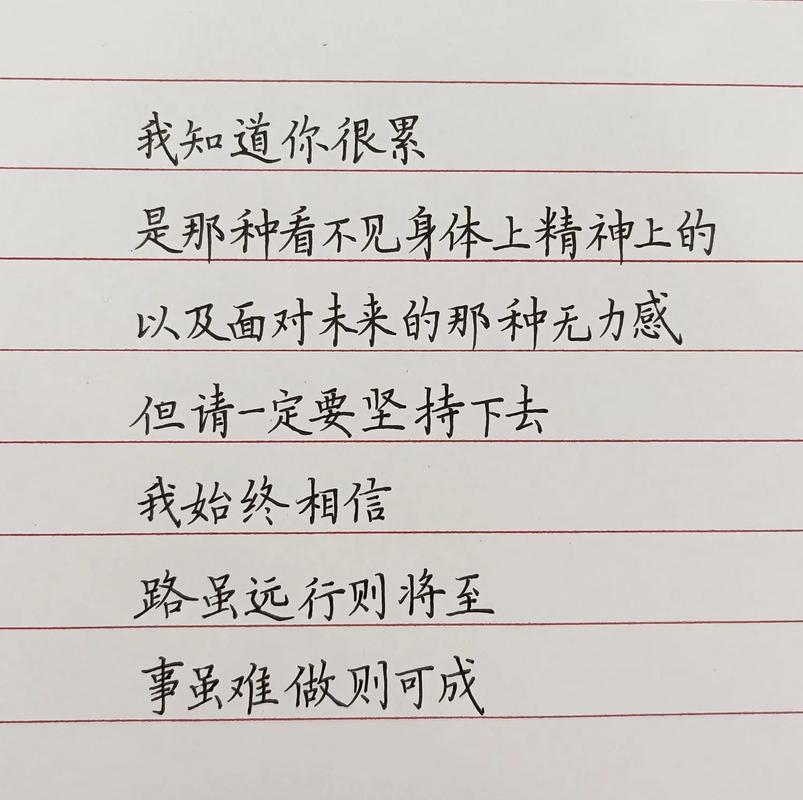 我知道你很累
是那种看不见身体上精神上的
以及面对未来的那种无力感
但请一定要坚持下去
我始终相信
路虽远行则将至
事虽难做则可成